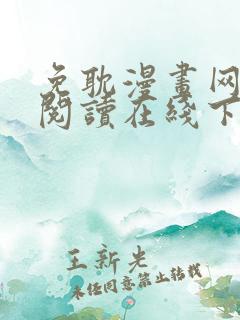 免耽漫畫网
閱讀在綫下
王新光
未經同意禁止轉載